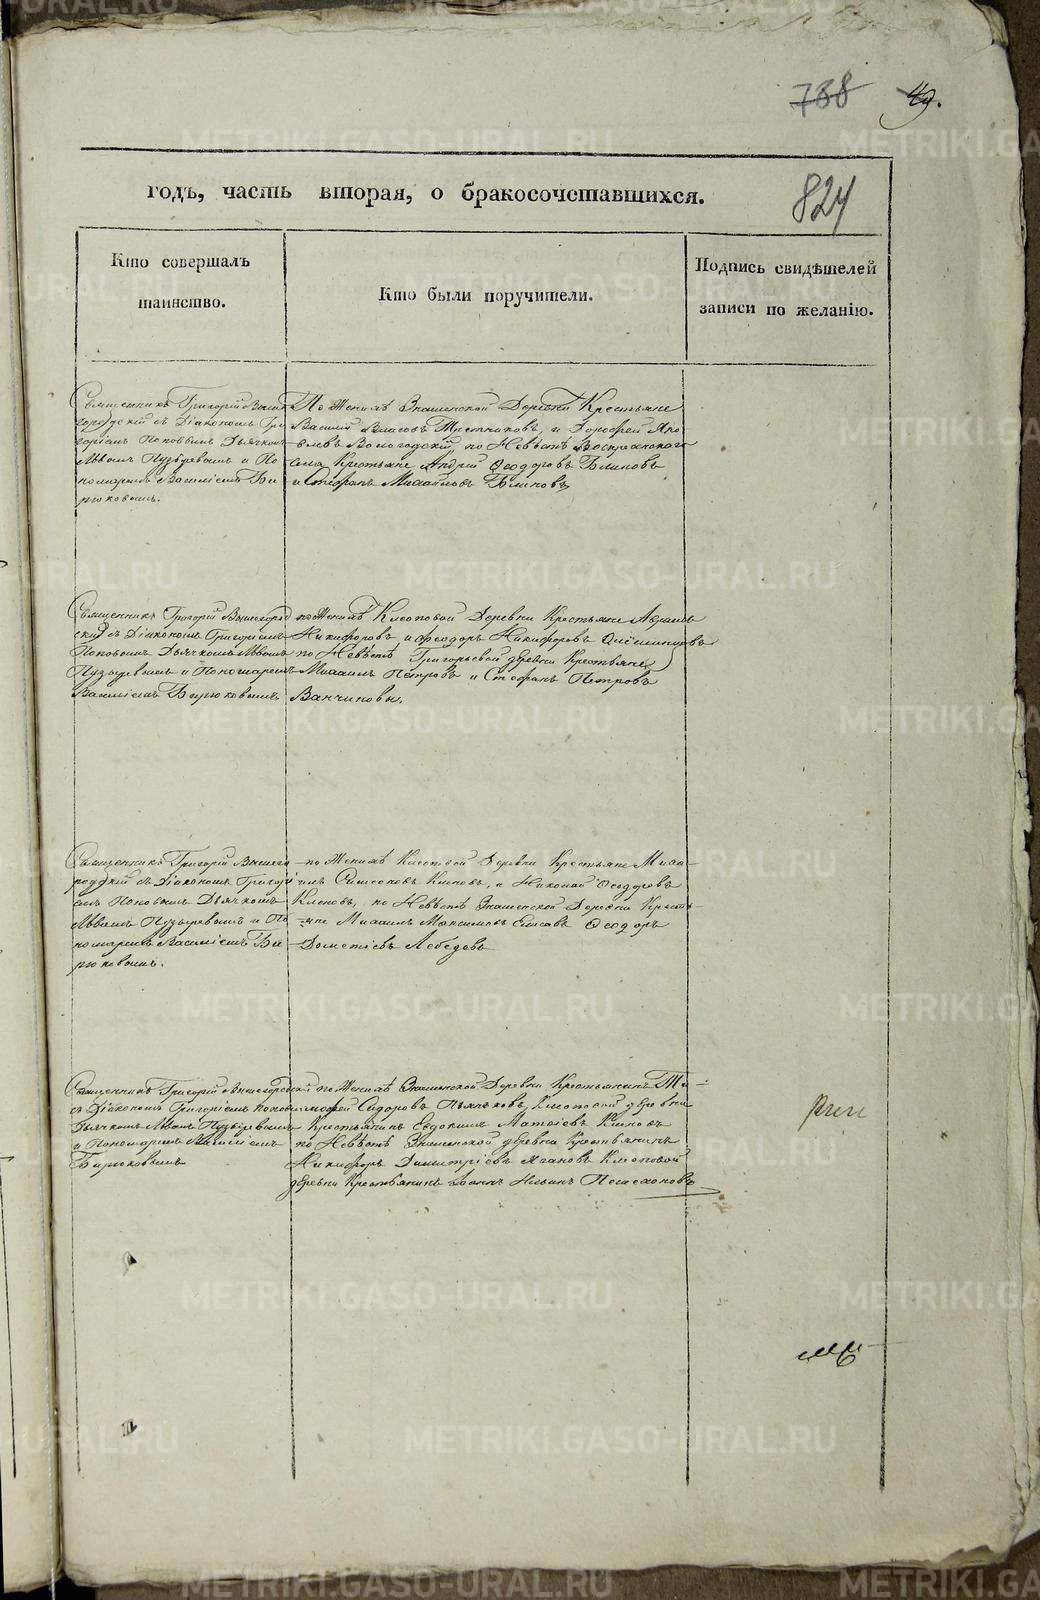 738 49.
годъ, часть вторая, о бракосочетавшихся.
824
Кто совершалъ
таинство.
Кто были поручители.
Подпись свидѣтелей
записи по желанію.
Священникъ Григорій Вышег
городскій съ Діакономъ Гри
горіемъ Поповымъ Дьячкомъ
Львомъ Пузыревымъ и По
номаремъ Василіемъ Би
рюковымъ.
По Женихѣ Знаменской Деревни Крестьяне
Василій Власовъ и Дорофей Яко
влевъ Вологодскій, по Невѣстѣ Воскресенскаго
села Крестьяне Андрей Ѳеодоровъ Блиновъ
и Стефанъ Михайловъ Блиновъ
Священникъ Григорій Вышегород
скій съ Діакономъ Григоріемъ
Поповымъ Дьячкомъ Львомъ
Пузыревымъ и Пономаремъ
Василіемъ Бирюковымъ
по Женихѣ Клеповой Деревни Крестьяне Абрамъ
Никифоровъ и Ѳеодоръ Никифоровъ
по Невѣстѣ Григорьевой деревни Крестьяне
Михаилъ Петровъ и Стефанъ Петровъ
Ванчиновы.
Священникъ Григорій Вышего
родскій съ Діакономъ Григорі
емъ Поповымъ Дьячкомъ
Львомъ Пузыревымъ и По
номаремъ Василіемъ Би
рюковымъ.
по Женихѣ Клеповой Деревни Крестьяне Миха
илъ Симеоновъ Клеповъ, и Николай Ѳеодоровъ
Клеповъ, по Невѣстѣ Знаменской Деревни Кресть
яне Михаилъ Максимовъ Ѳеодоръ
Дометіевъ Лебедевъ
Священникъ Григорій Вышегородскій
съ Діакономъ Григоріемъ Поповымъ
Дьячкомъ Львомъ Пузыревымъ
и Пономаремъ Василіемъ
Бирюковымъ
по Женихѣ Знаменской Деревни Крестьянинъ Ти
мофей Сидоровъ Клеповой деревни
Крестьянинъ Евдокимъ Матвіевъ Клеповъ
по Невѣстѣ Знаменской деревни Крестьянинъ
Никифоръ Димитріевъ Клеповой
деревни Крестьянинъ Іоаннъ Ильинъ
METRIKI.GASO-URAL.RU